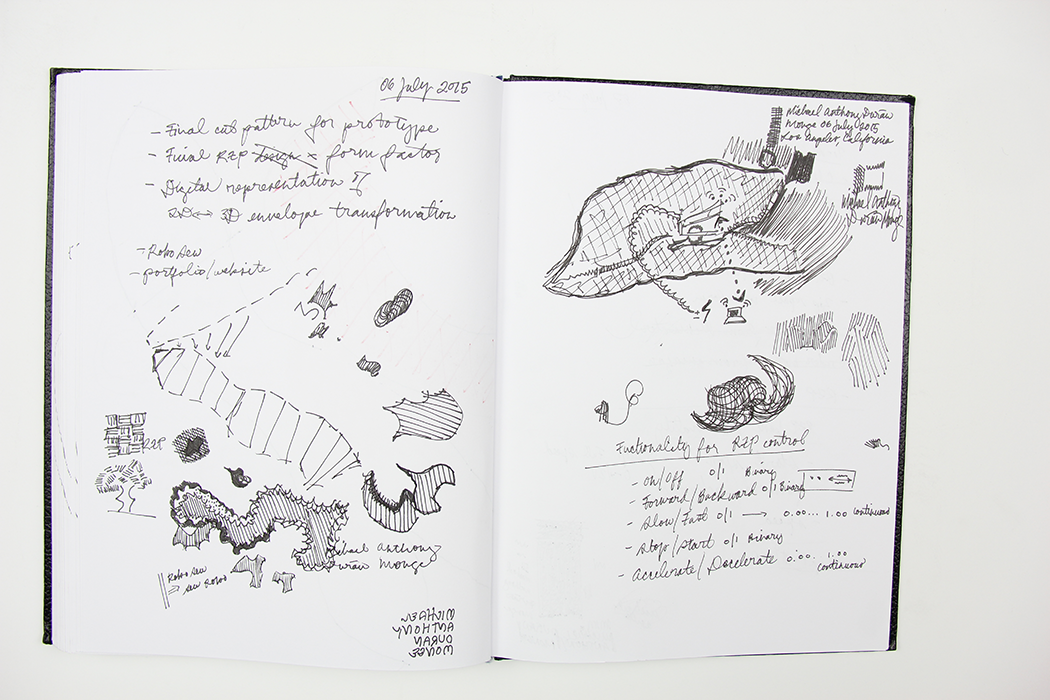 06 July 2015
- Final cut pattern for prototype
- Final RZP design × form factor
- Digital representation of
2D ↔ 3D envelope transformation
- Robo Sew
- portfolio/website
RZP
Michael Anthony
Durán Monge
Robo Sew
Sew Robo
MICHAEL
ANTHONY
DURAN
MONGE
Michael Anthony Durán
Monge 06 July 2015
Los Angeles, California
Michael Anthony
Durán Monge
Fuctionality for RZP control
- On/Off 0/1 Binary
- Forward/Backward 0/1 Binary
- Slow/Fast 0/1 → 0.00... 1.00 continuous
- Stop/Start 0/1 Binary
- Accelerate/Decelerate 0.00. 1.00
continuous